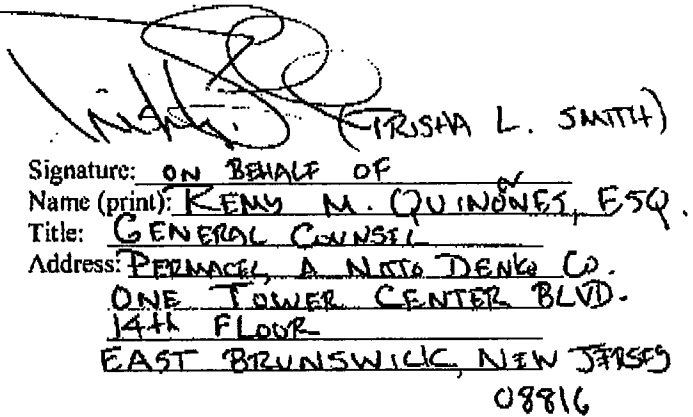 (TRISHA L. SMITH)
Signature: ON BEHALF OF
Name (print): KEMY M. QUIÑONES, ESQ.
Title: GENERAL COUNSEL
Address: PERMACEL, A NITTO DENKO CO.
ONE TOWER CENTER BLVD.
14th FLOOR
EAST BRUNSWICK, NEW JERSEY
08816